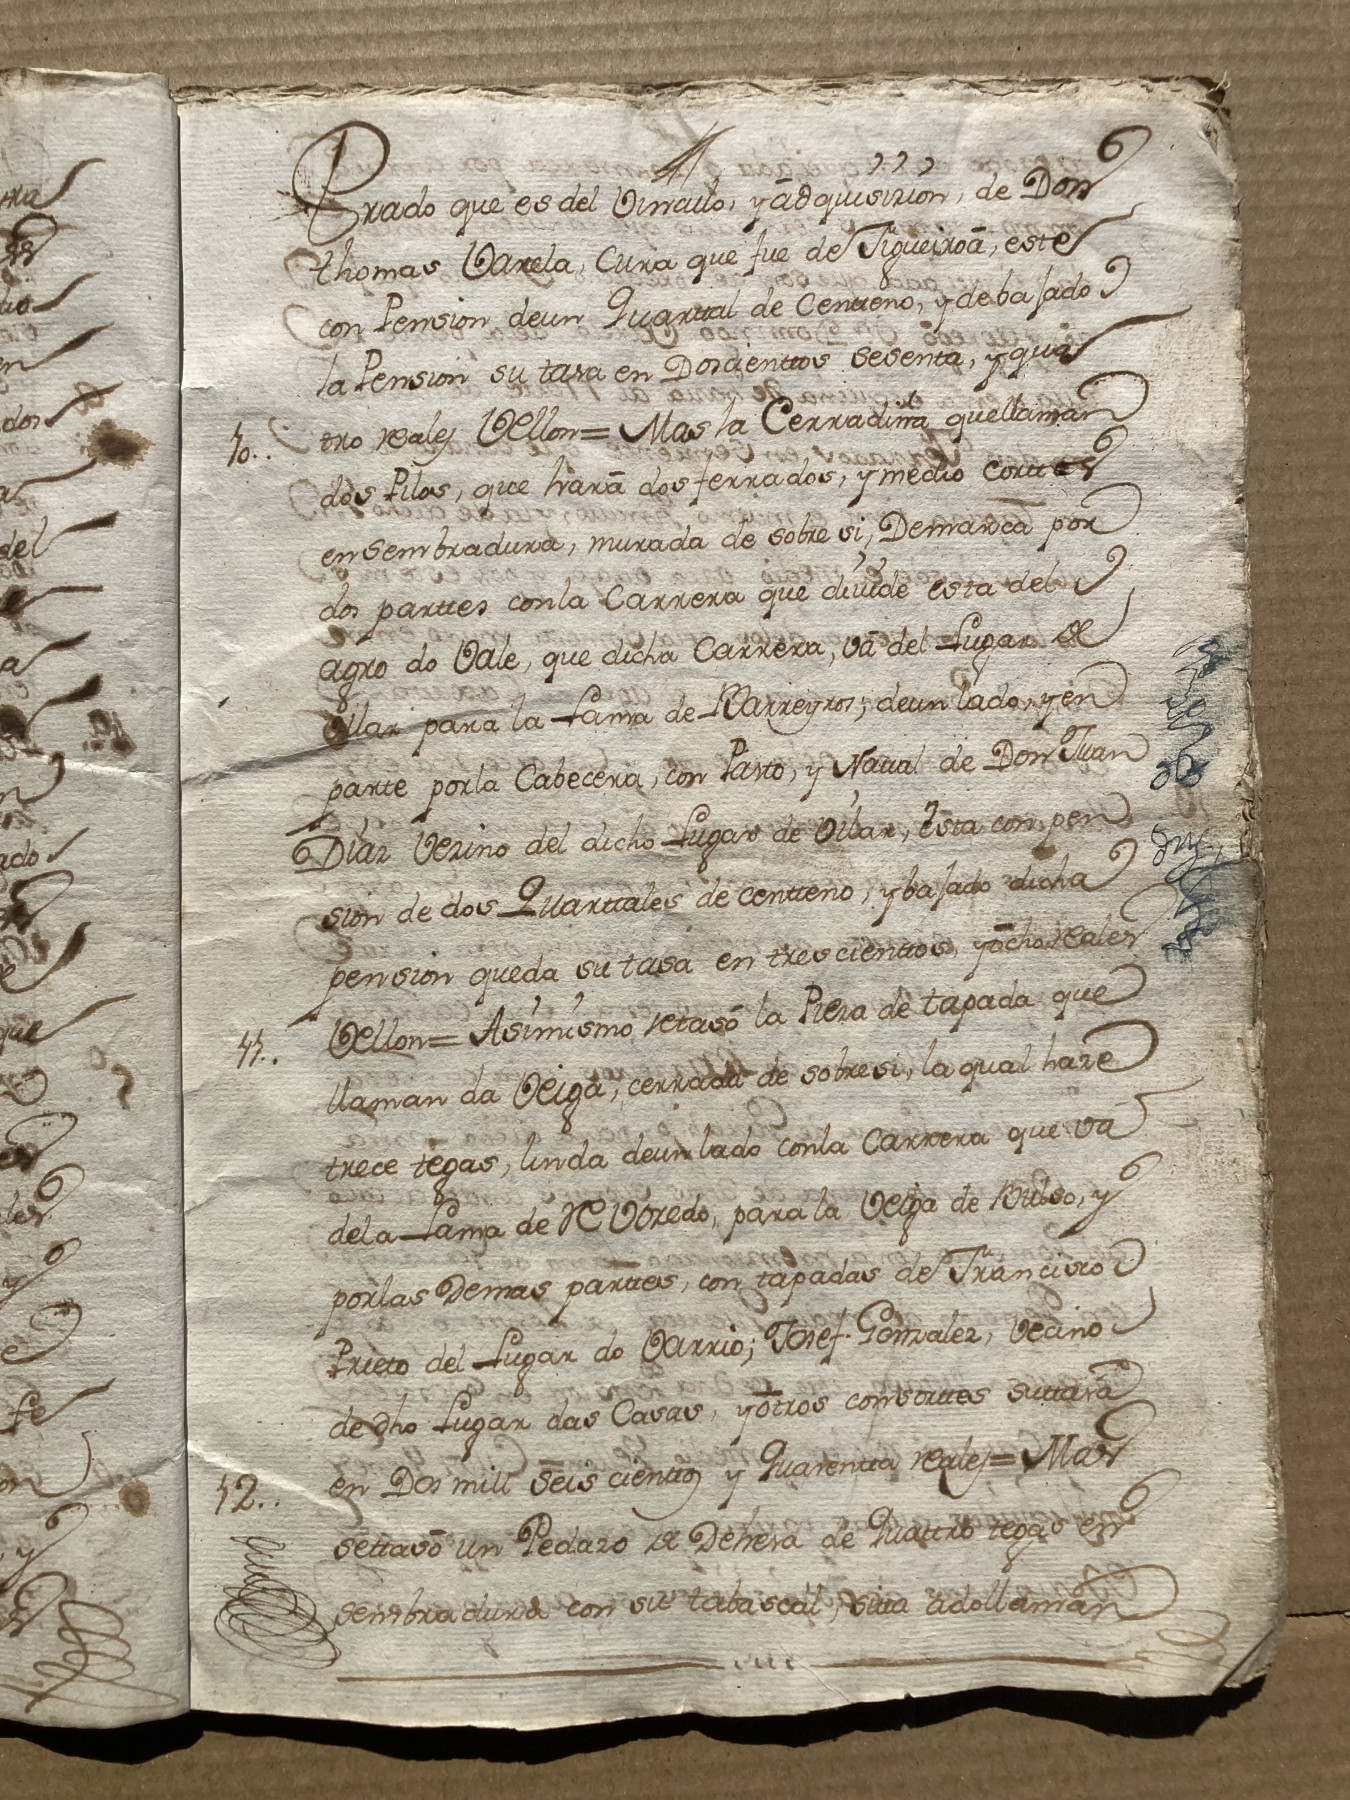 Prado que es del Vinculo, y adquisizion, de Don
thomas Varela, Cura que fue de Figueiroâ, este
con Pension deun Quarttal de Centteno, y debajado
la Pension su tasa en Doscienttos sesenta, y qua
tro reales Vellon= Mas la Cerradiña quellaman
dos Pilos, que hará dos ferrados, y medio corttes
ensembradura, murada de sobre si, Demarca por
dos parttes conla Carrera que diuide esta del
agro do Vale, que dicha Carrera, vâ del Lugar de
Vilar para la Lama de Barreyros; deun lado, y en
parte porla Cabecera, con Pasto, y Nattal de Don Juan
Diaz Vezino del dicho Lugar de Vilar, Esta con pen
sion de dos Quarttales de centteno, y bajado dicha
pension queda su tasa en trescienttos, yôcho reales
Vellon= Asimismo retasó la Pieza de tapada que
llaman da Veiga, cerrada de sobresi, la qual haze
trece tegas, linda deun lado conla Carrera que va
dela Lama de Revoredo, para la Veiga de, y
porlas Demas parttes, con tapadas de Francisco
Prieto del Lugar do Varrio; Josef Gonzalez, Vecino
de dho Lugar das Casas, yôtros consorttes suttasa
en Dos mill seis cienttos y Quarentta reales= Mas
settasó un Pedazo de Dehesa de Quattro tegas en
sembradura con su tabascal, sitta adollaman